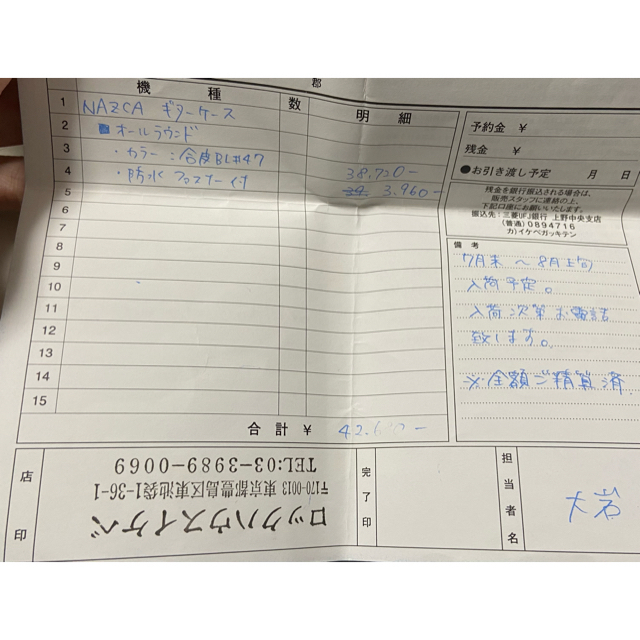 郡
機種 数 明細
1 NAZCA ギターケース
2 ■オールラウンド
3 ・カラー:合皮BL#47
4 ・防水ファスナー付 38,720-
5 3,960-
6
7
8
9
10
11
12
13
14
15
合計 ¥ 42,
予約金 ¥
残金 ¥
●お引き渡し予定 月 日
残金を銀行振込される場合は、
販売スタッフに連絡の上、
下記口座にお願いいたします。
振込先:三菱UFJ銀行 上野中央支店
(普通)0894716
カ)イケベガッキテン
備考
7月末〜8月上旬
入荷予定。
入荷次第お電話
致します。
※全額ご精算済
店印
ロックハウスイケベ
〒170-0013 東京都豊島区東池袋1-36-1
TEL:03-3989-0069
完了印
担当者名
大岩